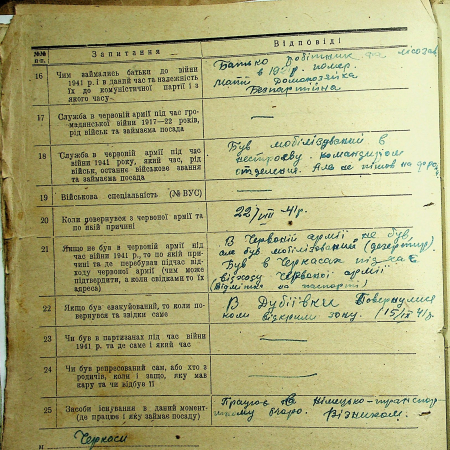 №№ пп.
Запитання
Відповіді
16
Чим займались батьки до війни
1941 р. і в даний час та належність
їх до комуністичної партії і з
якого часу
Батько робітник на лісозав
в 19 р. помер.
мати домохозяйка
Безпартійна
17
Служба в червоній армії під час гро-
мадянської війни 1917—22 років,
рід військ та займаєма посада
—
18
Служба в червоній армії під час
війни 1941 року, який час, рід
військ, останнє військове звання
та займаєма посада
Був мобілізований в
нестроєву. командиром
отделения. Але не пішов на фр
19
Військова спеціяльність (№ ВУС)
—
20
Коли повернувся з червоної армії та
по якій причині
22/VIII 41 р.
21
Якщо не був в червоній армії під
час війни 1941 р., то по якій при-
чині та де перебував підчас від-
ходу червоної армії (чим може
підтвердити, а коли свідками то їх
адреса)
В Червоній армії не був,
але був мобілізований (дезертир).
Був в Черкасах під час
відходу Червоної армії
(відмітка на паспорті)
22
Якщо був евакуйований, то коли по-
вернувся та звідки саме
В Дубіївки Повернулися
коли відкрили зону. (15/IX 41 р.
23
Чи був в партизанах під час війни
1941 р. та де саме і який час
—
24
Чи був репресований сам, або хто з
родичів, коли і защо, яку мав
кару та чи відбув її
—
25
Засоби існування в даний момент
(де працює і яку займає посаду)
Працює в Німецько-транспор
ному бюро. Візником.
м
Черкаси